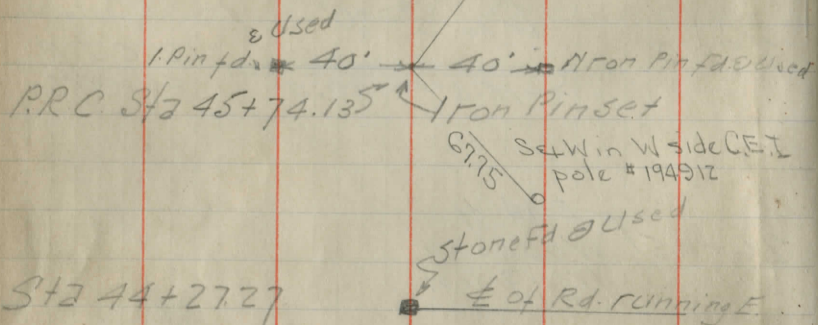 & Used
I. Pin fd. 40' 40' Iron Pin fd & Used
P.R.C. Sta 45+74.135 Iron Pin set
67.75 Set W in W side C.E.I.
pole #194912
Stone Fd & Used
Sta 44+27.27 ℄ of Rd. running E.